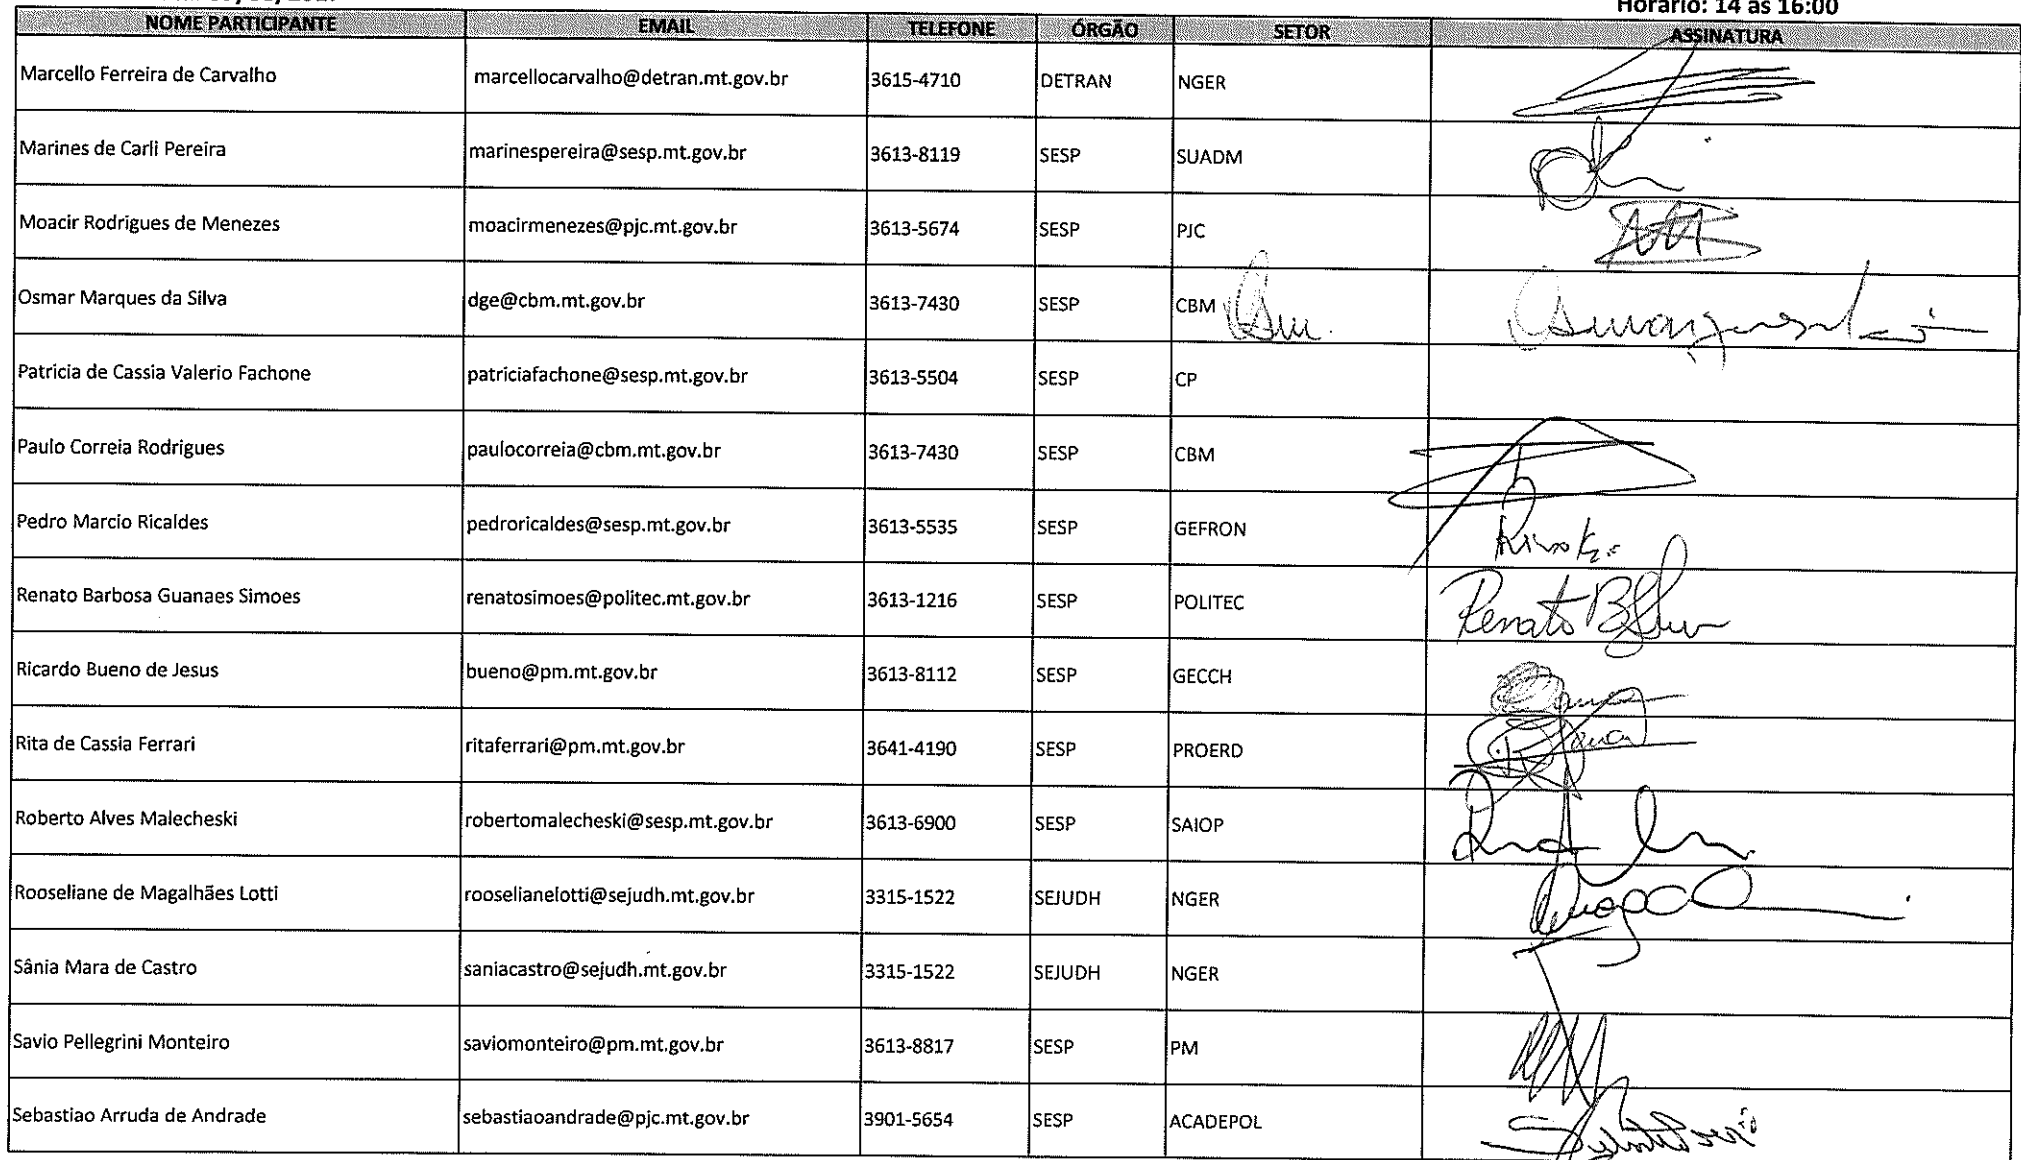 Horário: 14 às 16:00
NOME PARTICIPANTE EMAIL TELEFONE ÓRGÃO SETOR ASSINATURA
Marcello Ferreira de Carvalho marcellocarvalho@detran.mt.gov.br 3615-4710 DETRAN NGER
Marines de Carli Pereira marinespereira@sesp.mt.gov.br 3613-8119 SESP SUADM
Moacir Rodrigues de Menezes moacirmenezes@pjc.mt.gov.br 3613-5674 SESP PJC
Osmar Marques da Silva dge@cbm.mt.gov.br 3613-7430 SESP CBM
Patricia de Cassia Valerio Fachone patriciafachone@sesp.mt.gov.br 3613-5504 SESP CP
Paulo Correia Rodrigues paulocorreia@cbm.mt.gov.br 3613-7430 SESP CBM
Pedro Marcio Ricaldes pedroricaldes@sesp.mt.gov.br 3613-5535 SESP GEFRON
Renato Barbosa Guanaes Simoes renatosimoes@politec.mt.gov.br 3613-1216 SESP POLITEC Renato
Ricardo Bueno de Jesus bueno@pm.mt.gov.br 3613-8112 SESP GECCH
Rita de Cassia Ferrari ritaferrari@pm.mt.gov.br 3641-4190 SESP PROERD
Roberto Alves Malecheski robertomalecheski@sesp.mt.gov.br 3613-6900 SESP SAIOP
Rooseliane de Magalhães Lotti rooselianelotti@sejudh.mt.gov.br 3315-1522 SEJUDH NGER
Sânia Mara de Castro saniacastro@sejudh.mt.gov.br 3315-1522 SEJUDH NGER
Savio Pellegrini Monteiro saviomonteiro@pm.mt.gov.br 3613-8817 SESP PM
Sebastiao Arruda de Andrade sebastiaoandrade@pjc.mt.gov.br 3901-5654 SESP ACADEPOL